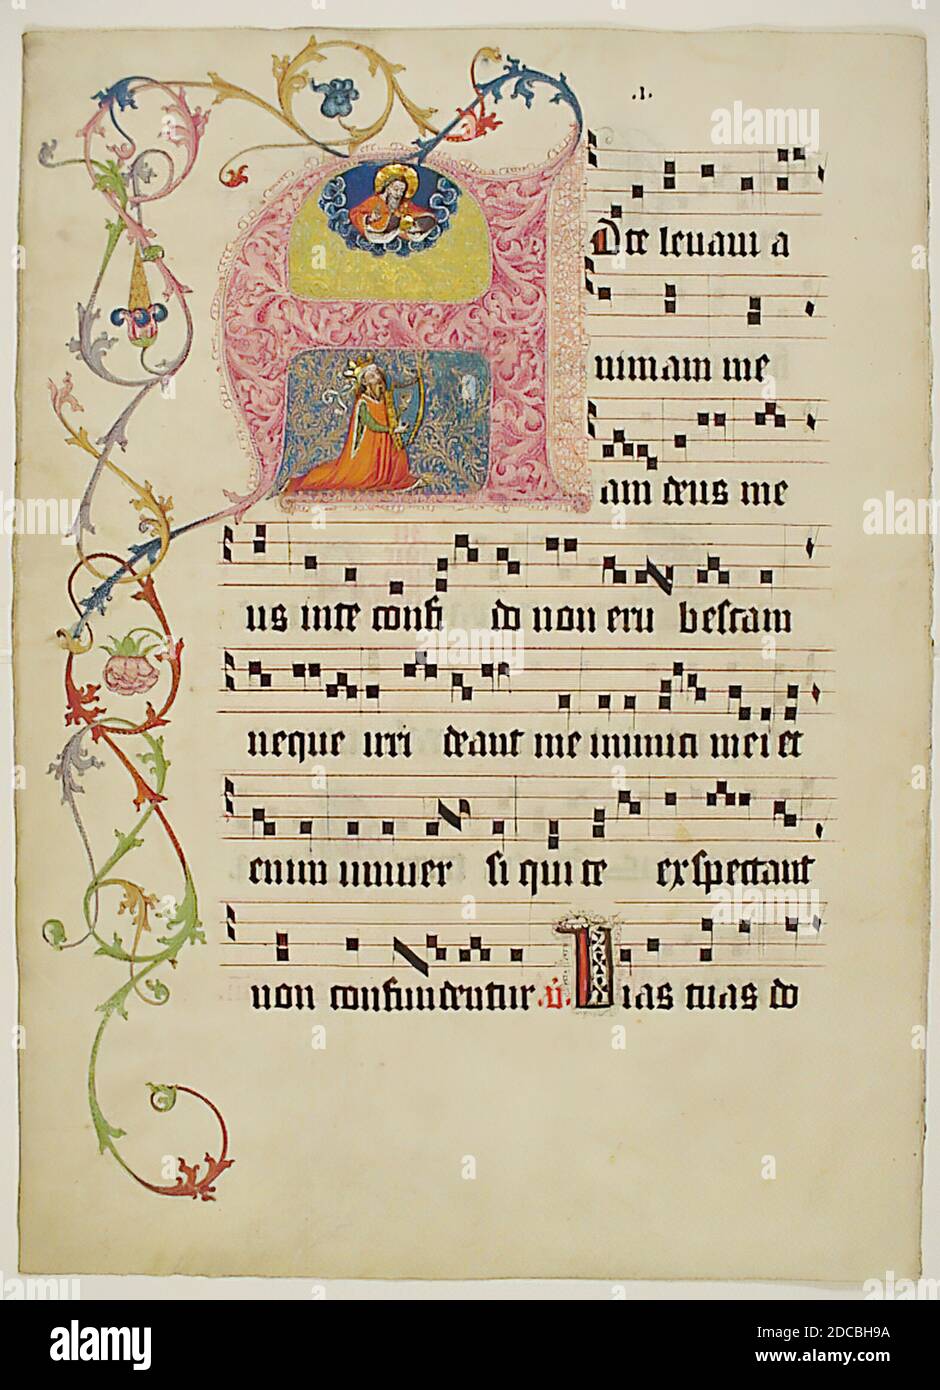 .1.
A Dte levavi a
nimam me
am deus me
us inte confi do non eru bescam
neque irri deant me inimici mei et
enim univer si qui te exspectant
non confundentur v. Vias tuas do
alamy
Image ID: 2DCBH9A
www.alamy.com